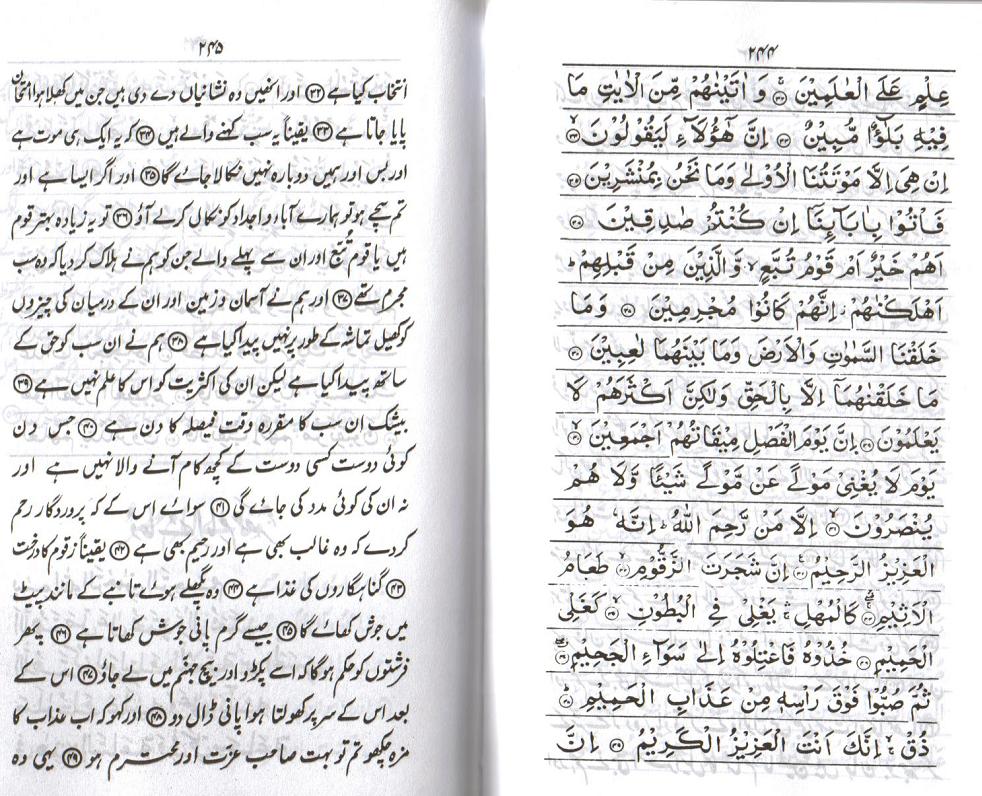 ۲۴۴
عِلْمٍ عَلَى الْعٰلَمِيْنَ ﴿۳۲﴾ وَ اٰتَيْنٰهُمْ مِّنَ الْاٰيٰتِ مَا
فِيْهِ بَلٰٓؤٌا مُّبِيْنٌ ﴿۳۳﴾ اِنَّ هٰٓؤُلَآءِ لَيَقُوْلُوْنَ ﴿۳۴﴾
اِنْ هِىَ اِلَّا مَوْتَتُنَا الْاُوْلٰى وَمَا نَحْنُ بِمُنْشَرِيْنَ ﴿۳۵﴾
فَاْتُوْا بِاٰبَآئِنَآ اِنْ كُنْتُمْ صٰدِقِيْنَ ﴿۳۶﴾
اَهُمْ خَيْرٌ اَمْ قَوْمُ تُبَّعٍ ۙ وَّالَّذِيْنَ مِنْ قَبْلِهِمْ ؕ
اَهْلَكْنٰهُمْ ؗ اِنَّهُمْ كَانُوْا مُجْرِمِيْنَ ﴿۳۷﴾ وَمَا
خَلَقْنَا السَّمٰوٰتِ وَالْاَرْضَ وَمَا بَيْنَهُمَا لٰعِبِيْنَ ﴿۳۸﴾
مَا خَلَقْنٰهُمَآ اِلَّا بِالْحَقِّ وَلٰكِنَّ اَكْثَرَهُمْ لَا
يَعْلَمُوْنَ ﴿۳۹﴾ اِنَّ يَوْمَ الْفَصْلِ مِيْقَاتُهُمْ اَجْمَعِيْنَ ﴿۴۰﴾
يَوْمَ لَا يُغْنِىْ مَوْلًى عَنْ مَّوْلًى شَيْئًا وَّلَا هُمْ
يُنْصَرُوْنَ ﴿۴۱﴾ اِلَّا مَنْ رَّحِمَ اللّٰهُ ؕ اِنَّهٗ هُوَ
الْعَزِيْزُ الرَّحِيْمُ ﴿۴۲﴾ اِنَّ شَجَرَتَ الزَّقُّوْمِ ﴿۴۳﴾ طَعَامُ
الْاَثِيْمِ ﴿۴۴﴾ كَالْمُهْلِ ۛ يَغْلِىْ فِى الْبُطُوْنِ ﴿۴۵﴾ كَغَلْىِ
الْحَمِيْمِ ﴿۴۶﴾ خُذُوْهُ فَاعْتِلُوْهُ اِلٰى سَوَآءِ الْجَحِيْمِ ﴿۴۷﴾
ثُمَّ صُبُّوْا فَوْقَ رَاْسِهٖ مِنْ عَذَابِ الْحَمِيْمِ ﴿۴۸﴾
ذُقْ ۙ اِنَّكَ اَنْتَ الْعَزِيْزُ الْكَرِيْمُ ﴿۴۹﴾ اِنَّ
۲۴۵
انتخاب کیا ہے ﴿۳۲﴾ اور انھیں وہ نشانیاں دے دی ہیں جن میں کھلا ہوا امتحان
پایا جاتا ہے ﴿۳۳﴾ یقیناً یہ سب کہنے والے ہیں ﴿۳۴﴾ کہ یہ ایک ہی موت ہے
اور بس اور ہمیں دوبارہ نہیں نکالا جائے گا ﴿۳۵﴾ اور اگر ایسا ہے اور
تم سچے ہو تو ہمارے آباء و اجداد کو نکال کرلے آؤ ﴿۳۶﴾ تو یہ زیادہ بہتر قوم
ہیں یا قوم تُبّع اور ان سے پہلے والے جن کو ہم نے ہلاک کر دیا کہ وہ سب
مجرم تھے ﴿۳۷﴾ اور ہم نے آسمان و زمین اور ان کے درمیان کی چیزوں
کو کھیل تماشہ کے طور پر نہیں پیدا کیا ہے ﴿۳۸﴾ ہم نے ان سب کو حق کے
ساتھ پیدا کیا ہے لیکن ان کی اکثریت کو اس کا علم نہیں ہے ﴿۳۹﴾
بیشک ان سب کا مقررہ وقت فیصلہ کا دن ہے ﴿۴۰﴾ جس دن
کوئی دوست کسی دوست کے کچھ کام آنے والا نہیں ہے اور
نہ ان کی کوئی مدد کی جائے گی ﴿۴۱﴾ سوائے اس کے کہ پروردگار رحم
کردے کہ وہ غالب بھی ہے اور رحیم بھی ہے ﴿۴۲﴾ یقیناً زقوم کا درخت
﴿۴۳﴾ گناہگاروں کی غذا ہے ﴿۴۴﴾ وہ پگھلے ہوئے تانبے کے مانند پیٹ
میں جوش کھائے گا ﴿۴۵﴾ جیسے گرم پانی جوش کھاتا ہے ﴿۴۶﴾ پھر
فرشتوں کو حکم ہوگا کہ اسے پکڑو اور بیچ جہنّم میں لے جاؤ ﴿۴۷﴾ اس کے
بعد اس کے سر پر کھولتا ہوا پانی ڈال دو ﴿۴۸﴾ اور کہو کہ اب عذاب کا
مزہ چکھو تم تو بہت صاحب عزّت اور محترم ہو ﴿۴۹﴾ یہی وہ